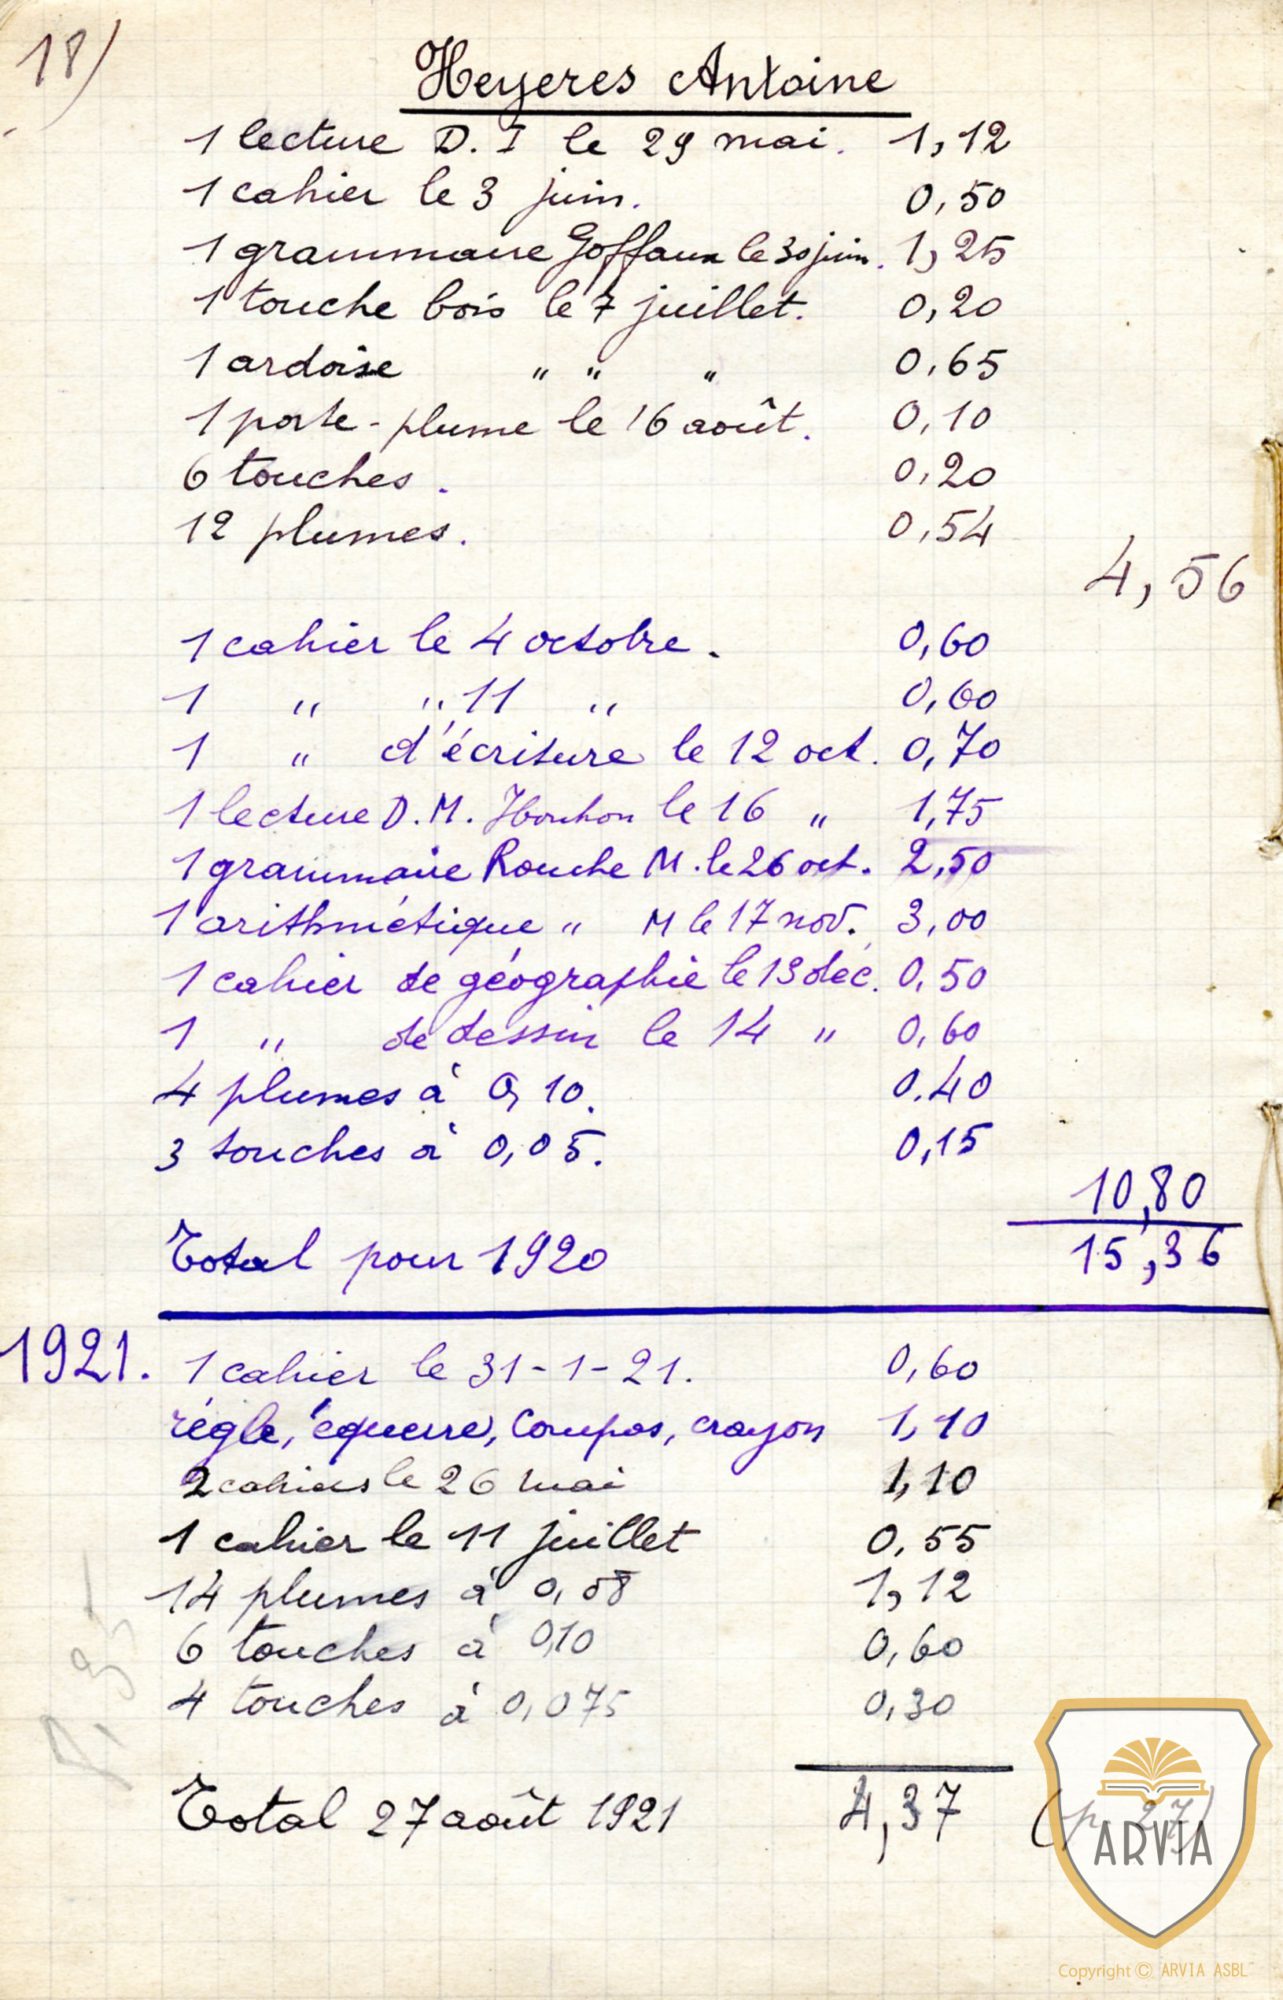 18)
Heyeres Antoine
1 lecture D. I le 29 mai. 1,12
1 cahier le 3 juin. 0,50
1 grammaire Goffaux le 30 juin. 1,25
1 touche bois le 7 juillet. 0,20
1 ardoise " " " 0,65
1 porte-plume le 16 août. 0,10
6 touches. 0,20
12 plumes. 0,54
4,56
1 cahier le 4 octobre. 0,60
1 " " 11 " 0,60
1 " d'écriture le 12 oct. 0,70
1 lecture D. M. le 16 " 1,75
1 grammaire Rouche M. le 26 oct. 2,50
1 arithmétique " M le 17 nov. 3,00
1 cahier de géographie le 13 déc. 0,50
1 " de dessin le 14 " 0,60
4 plumes à 0,10. 0,40
3 touches à 0,05. 0,15
10,80
Total pour 1920 15,36
1921. 1 cahier le 31-1-21. 0,60
règle, équerre, compas, crayon 1,10
2 cahiers le 26 mai 1,10
1 cahier le 11 juillet 0,55
14 plumes à 0,08 1,12
6 touches à 0,10 0,60
4 touches à 0,075 0,30
Total 27 août 1921 4,37 (p. 27)
ARVIA
Copyright © ARVIA ASBL